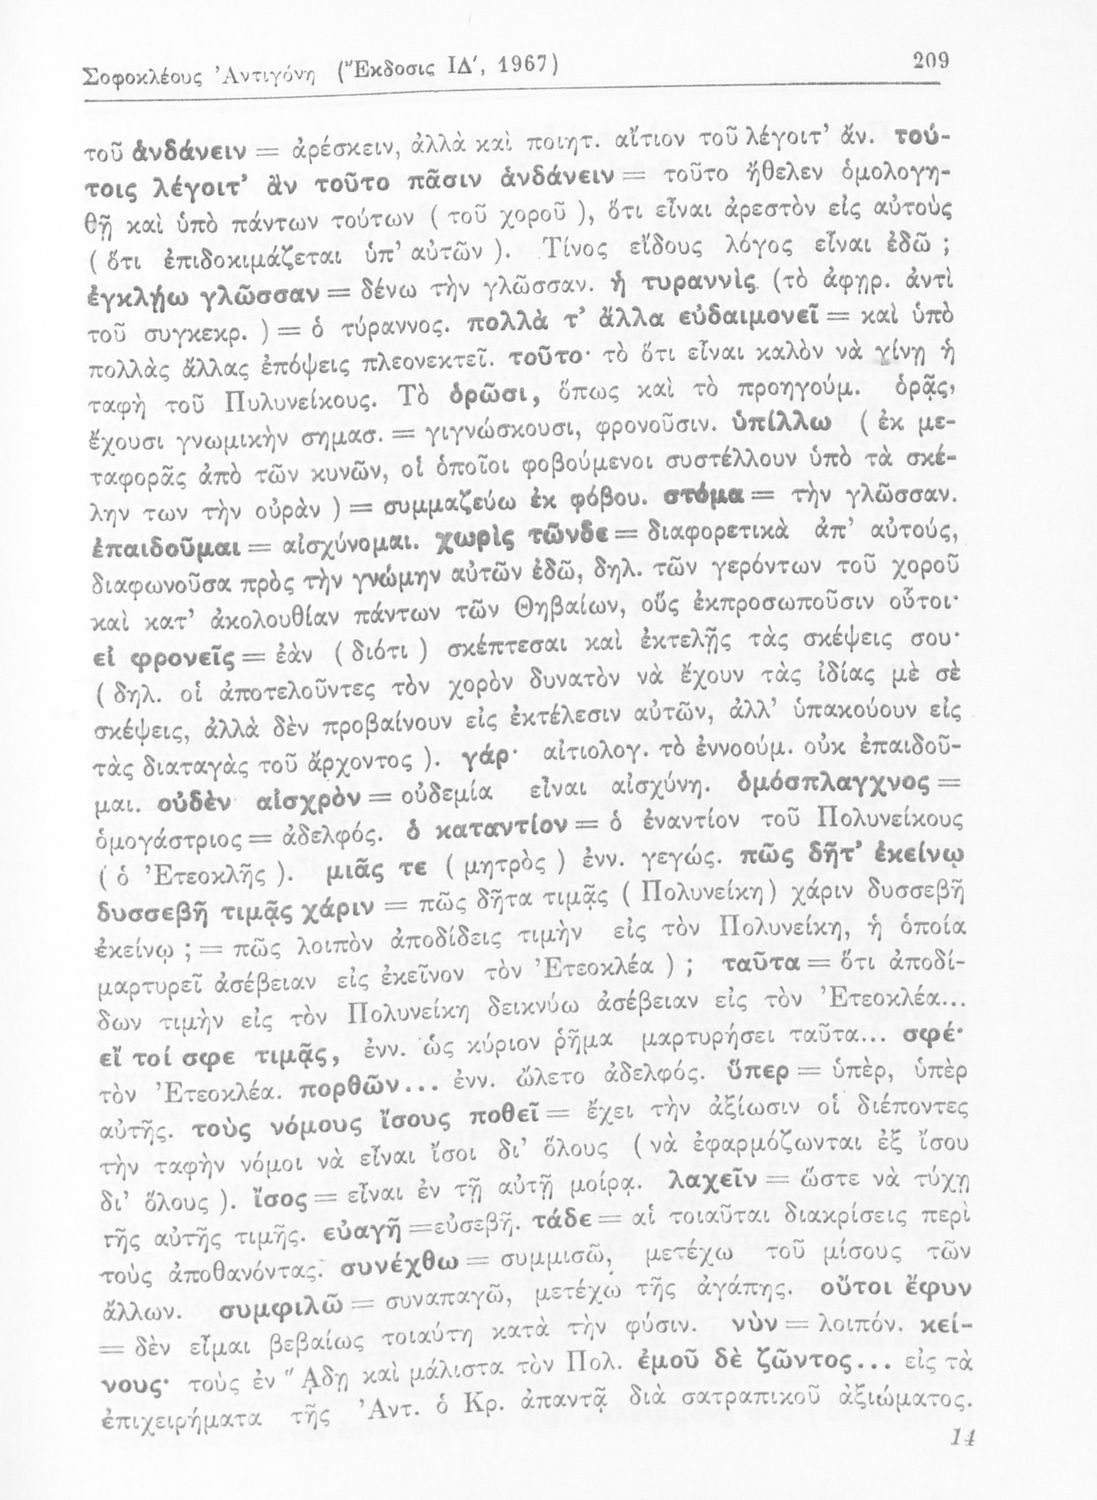 Σοφοκλέους Ἀντιγόνη (Ἔκδοσις ΙΔ', 1967) 209
τοῦ ἁνδάνειν = ἀρέσκειν, ἀλλὰ καὶ ποιητ. αἴτιον τοῦ λέγοιτ' ἄν. τού-
τοις λέγοιτ' ἂν τοῦτο πᾶσιν ἁνδάνειν = τοῦτο ἤθελεν ὁμολογη-
θῇ καὶ ὑπὸ πάντων τούτων ( τοῦ χοροῦ ), ὅτι εἶναι ἀρεστὸν εἰς αὐτοὺς
( ὅτι ἐπιδοκιμάζεται ὑπ' αὐτῶν ). Τίνος εἴδους λόγος εἶναι ἐδῶ ;
ἐγκλῄω γλῶσσαν = δένω τὴν γλῶσσαν. ἡ τυραννὶς (τὸ ἀφῃρ. ἀντὶ
τοῦ συγκεκρ. ) = ὁ τύραννος. πολλὰ τ' ἄλλα εὐδαιμονεῖ = καὶ ὑπὸ
πολλὰς ἄλλας ἐπόψεις πλεονεκτεῖ. τοῦτο· τὸ ὅτι εἶναι καλὸν νὰ γίνῃ ἡ
ταφὴ τοῦ Πυλυνείκους. Τὸ ὁρῶσι, ὅπως καὶ τὸ προηγούμ. ὁρᾷς,
ἔχουσι γνωμικὴν σημασ. = γιγνώσκουσι, φρονοῦσιν. ὑπίλλω ( ἐκ με-
ταφορᾶς ἀπὸ τῶν κυνῶν, οἱ ὁποῖοι φοβούμενοι συστέλλουν ὑπὸ τὰ σκέ-
λην των τὴν οὐρὰν ) = συμμαζεύω ἐκ φόβου. στόμα = τὴν γλῶσσαν.
ἐπαιδοῦμαι = αἰσχύνομαι. χωρὶς τῶνδε = διαφορετικὰ ἀπ' αὐτούς,
διαφωνοῦσα πρὸς τὴν γνώμην αὐτῶν ἐδῶ, δηλ. τῶν γερόντων τοῦ χοροῦ
καὶ κατ' ἀκολουθίαν πάντων τῶν Θηβαίων, οὓς ἐκπροσωποῦσιν οὗτοι·
εἰ φρονεῖς = ἐὰν ( διότι ) σκέπτεσαι καὶ ἐκτελῇς τὰς σκέψεις σου·
( δηλ. οἱ ἀποτελοῦντες τὸν χορὸν δυνατὸν νὰ ἔχουν τὰς ἰδίας μὲ σὲ
σκέψεις, ἀλλὰ δὲν προβαίνουν εἰς ἐκτέλεσιν αὐτῶν, ἀλλ' ὑπακούουν εἰς
τὰς διαταγὰς τοῦ ἄρχοντος ). γάρ· αἰτιολογ. τὸ ἐννοούμ. οὐκ ἐπαιδοῦ-
μαι. οὐδὲν αἰσχρὸν = οὐδεμία εἶναι αἰσχύνη. ὁμόσπλαγχνος =
ὁμογάστριος = ἀδελφός. ὁ καταντίον = ὁ ἐναντίον τοῦ Πολυνείκους
( ὁ Ἐτεοκλῆς ). μιᾶς τε ( μητρὸς ) ἐνν. γεγώς. πῶς δῆτ' ἐκείνῳ
δυσσεβῆ τιμᾷς χάριν = πῶς δῆτα τιμᾷς ( Πολυνείκη) χάριν δυσσεβῆ
ἐκείνῳ ; = πῶς λοιπὸν ἀποδίδεις τιμὴν εἰς τὸν Πολυνείκη, ἡ ὁποία
μαρτυρεῖ ἀσέβειαν εἰς ἐκεῖνον τὸν Ἐτεοκλέα ) ; ταῦτα = ὅτι ἀποδί-
δων τιμὴν εἰς τὸν Πολυνείκη δεικνύω ἀσέβειαν εἰς τὸν Ἐτεοκλέα...
εἴ τοί σφε τιμᾷς, ἐνν. ὡς κύριον ῥῆμα μαρτυρήσει ταῦτα... σφέ·
τὸν Ἐτεοκλέα. πορθῶν... ἐνν. ὤλετο ἀδελφός. ὕπερ = ὑπὲρ, ὑπὲρ
αὐτῆς. τοὺς νόμους ἴσους ποθεῖ = ἔχει τὴν ἀξίωσιν οἱ διέποντες
τὴν ταφὴν νόμοι νὰ εἶναι ἴσοι δι' ὅλους ( νὰ ἐφαρμόζωνται ἐξ ἴσου
δι' ὅλους ). ἴσος = εἶναι ἐν τῇ αὐτῇ μοίρᾳ. λαχεῖν = ὥστε νὰ τύχῃ
τῆς αὐτῆς τιμῆς. εὐαγῆ =εὐσεβῆ. τάδε = αἱ τοιαῦται διακρίσεις περὶ
τοὺς ἀποθανόντας. συνέχθω = συμμισῶ, μετέχω τοῦ μίσους τῶν
ἄλλων. συμφιλῶ = συναπαγῶ, μετέχω τῆς ἀγάπης. οὔτοι ἔφυν
= δὲν εἶμαι βεβαίως τοιαύτη κατὰ τὴν φύσιν. νὺν = λοιπόν. κεί-
νους· τοὺς ἐν ῞ᾼδῃ καὶ μάλιστα τὸν Πολ. ἐμοῦ δὲ ζῶντος... εἰς τὰ
ἐπιχειρήματα τῆς Ἀντ. ὁ Κρ. ἀπαντᾷ διὰ σατραπικοῦ ἀξιώματος.
14